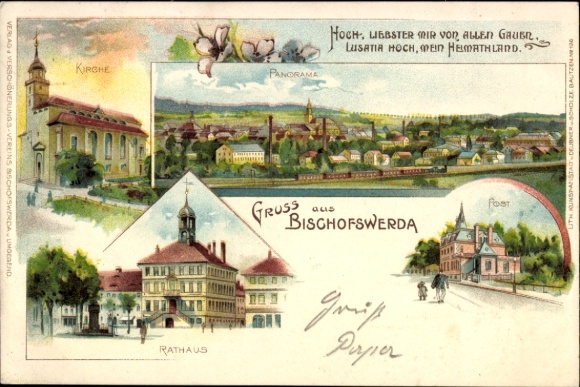 HOCH-, LIEBSTER MIR VON ALLEN GAUEN.
LUSATIA HOCH, MEIN HEIMATHLAND.
KIRCHE
PANORAMA
GRUSS aus
BISCHOFSWERDA
POST
RATHAUS
Gruß
VERLAG D. VERSCHÖNERUNGS-VEREINS BISCHOFSWERDA U. UMGEGEND.
LITH. KUNSTANSTALT V. DÜBNER & SCHOLZE, BAUTZEN. № 106